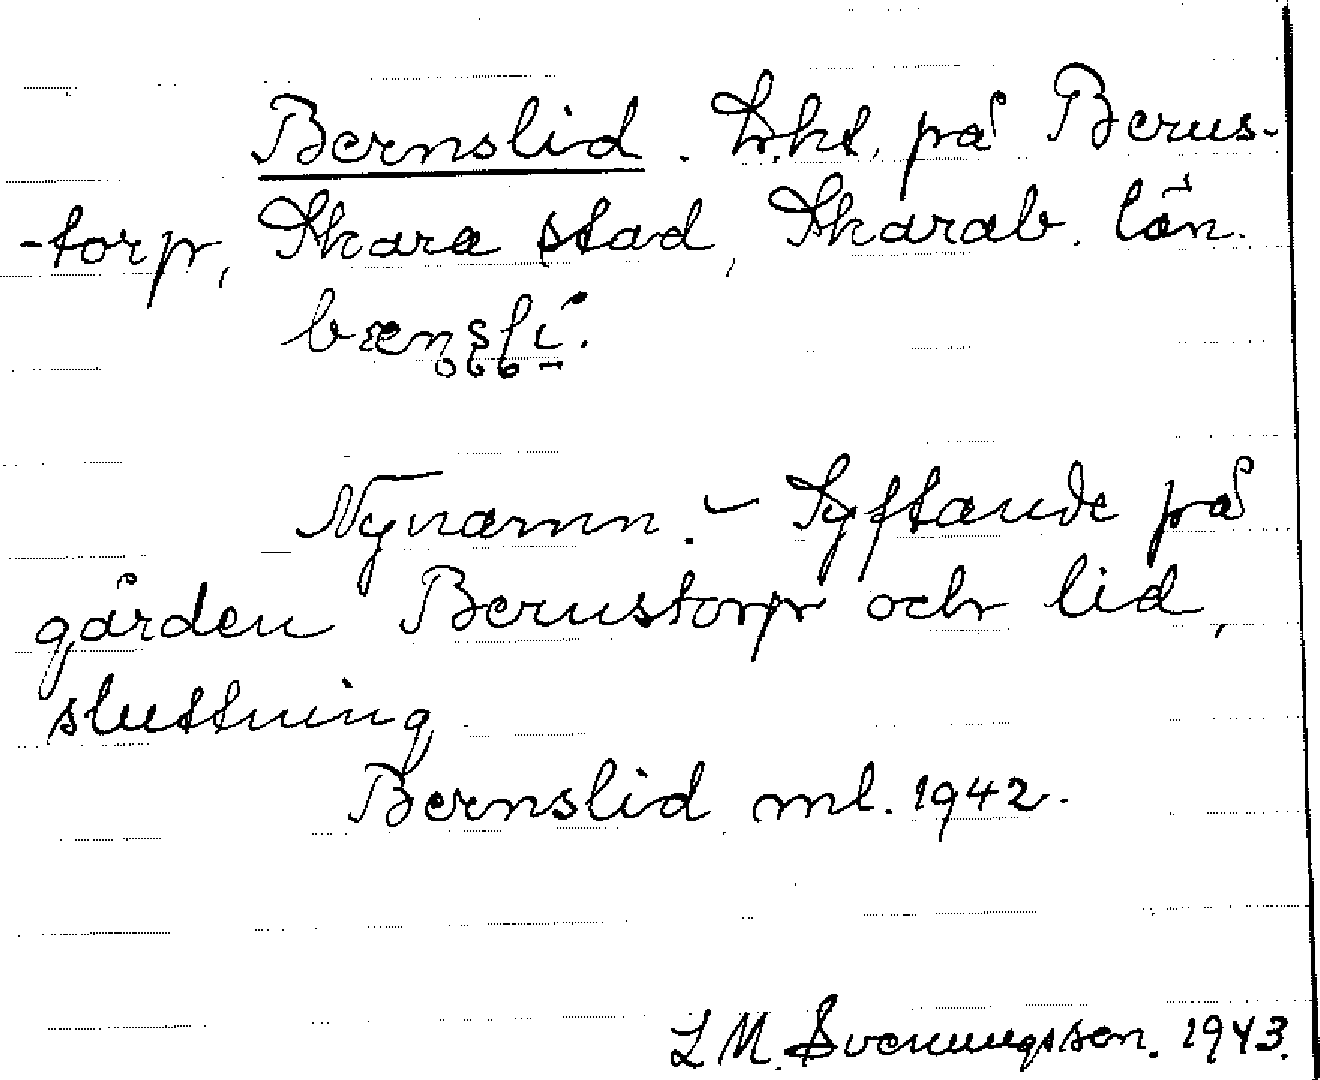 Bernslid. Lht. på Berns-
-torp, Skara stad, Skarab. län.
Nynamn. - Syftande på
gården Bernstorp och lid,
sluttning.
Bernslid ml. 1942.
L M. Svenungsson. 1943.